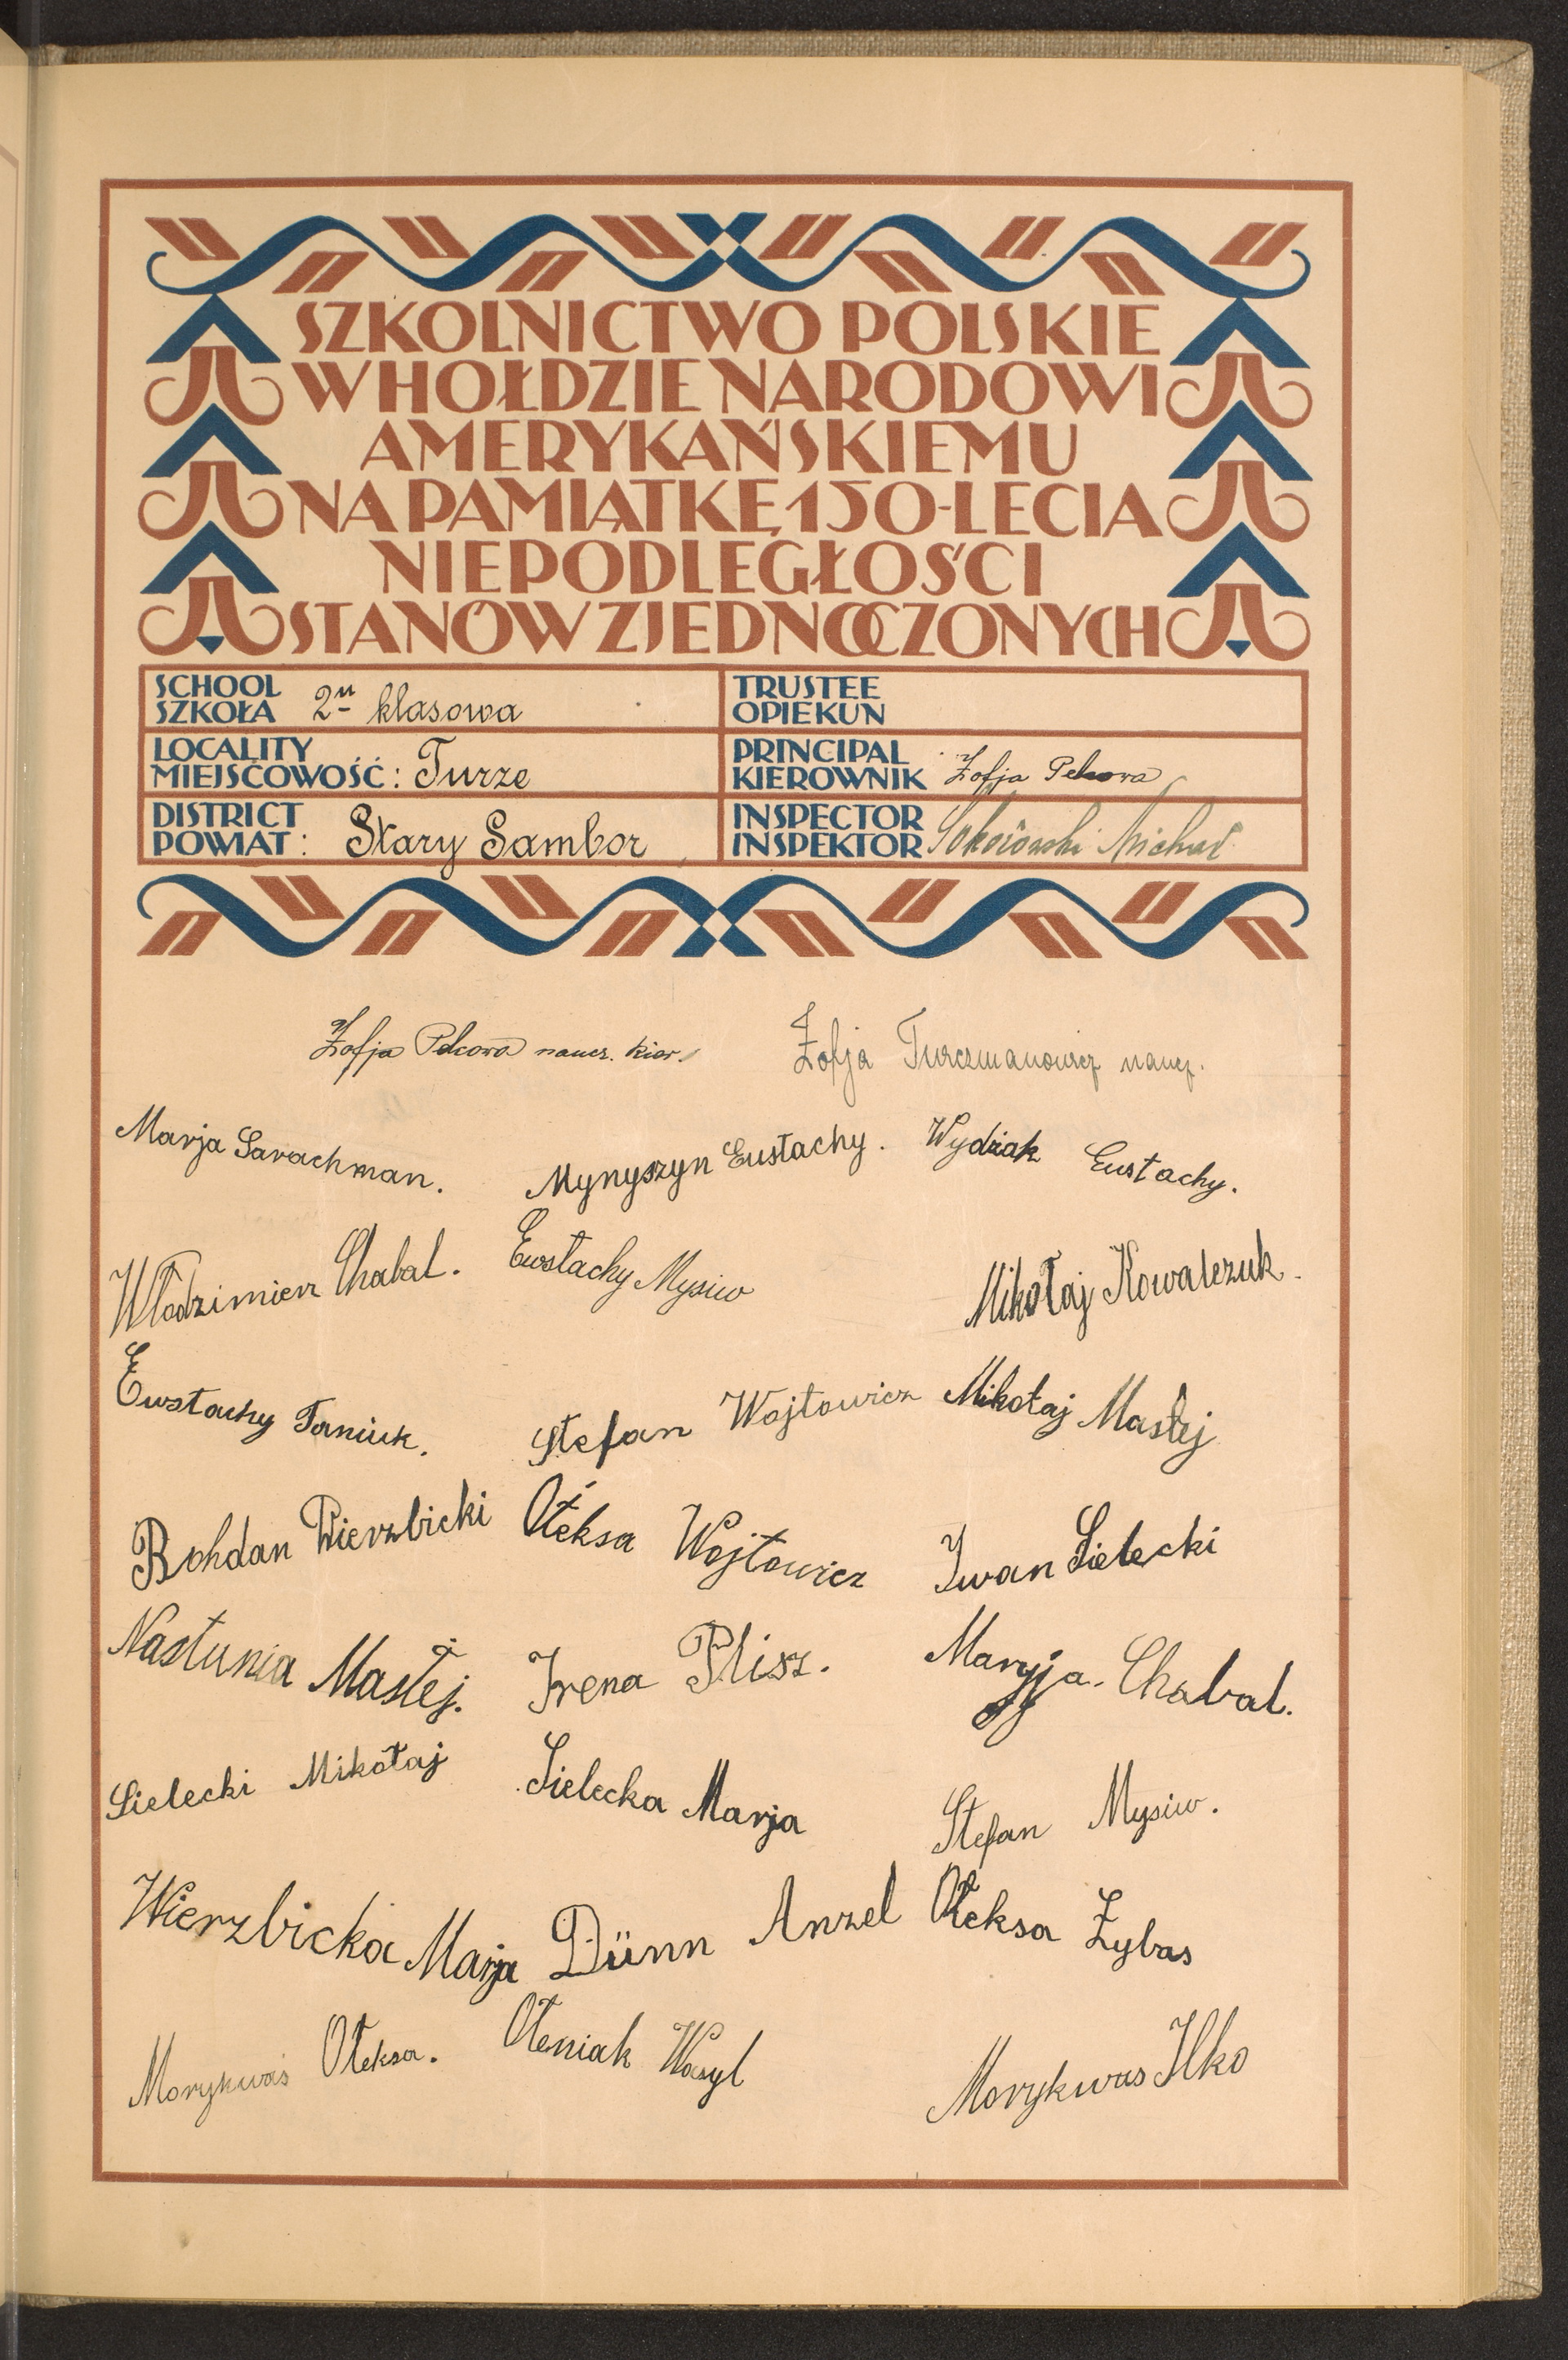 SZKOLNICTWO POLSKIE
W HOŁDZIE NARODOWI
AMERYKAŃSKIEMU
NA PAMIĄTKĘ 150-LECIA
NIEPODLEGŁOŚCI
STANÓW ZJEDNOCZONYCH
SCHOOL
SZKOŁA 2u klasowa
TRUSTEE
OPIEKUN
LOCALITY
MIEJSCOWOŚĆ: Turze
PRINCIPAL
KIEROWNIK Zofja Pelcowa
DISTRICT
POWIAT: Stary Sambor
INSPECTOR
INSPEKTOR Sokołowski Michał
Zofja Pelcowa naucz. kier. Zofja Turczmanowicz naucz.
Marja Sarachman. Mynyszyn Eustachy. Wydziak Eustachy.
Włodzimierz Chabal. Eustachy Mysiw Mikołaj Kowalczuk.
Eustachy Taniuk. Stefan Wojtowicz Mikołaj Masłej
Bohdan Wierzbicki Ołeksa Wojtowicz Iwan Sielecki
Nastunia Masłej. Irena Plisz. Maryja Chabal.
Sielecki Mikołaj Sielecka Marja Stefan Mysiw.
Wierzbicka Marja Dünn Anzel Ołeksa Zybas
Morykwas Ołeksa. Ołeniak Wasyl Morykwas Ilko